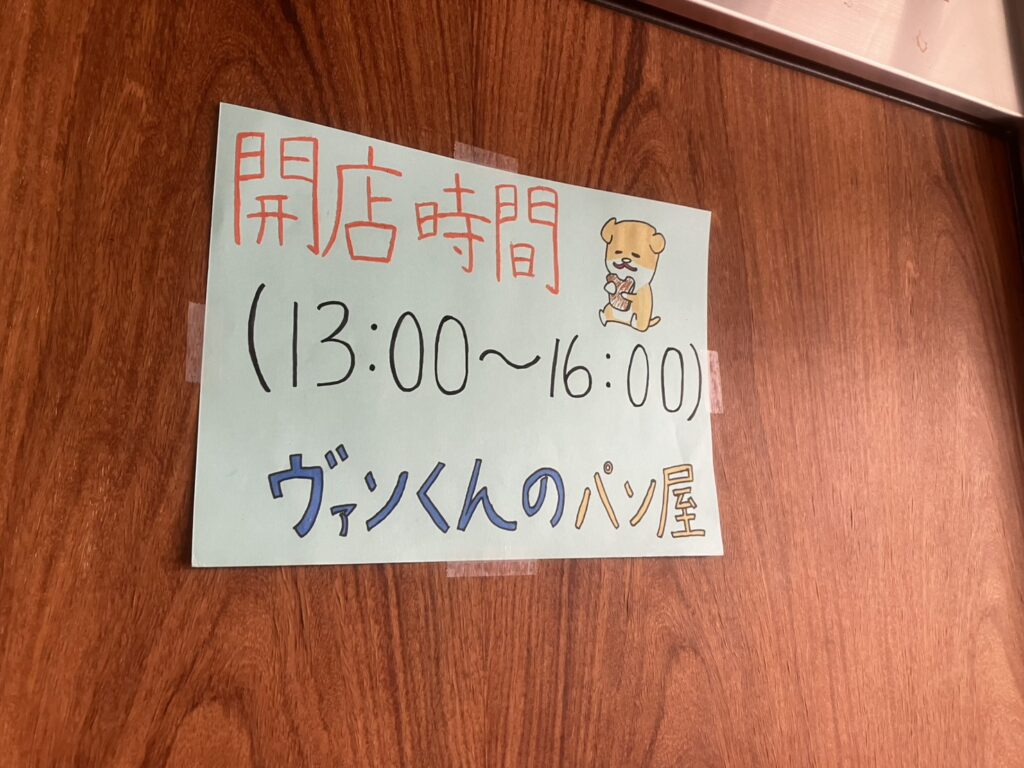 開店時間
(13:00～16:00)
ヴァンくんのパン屋